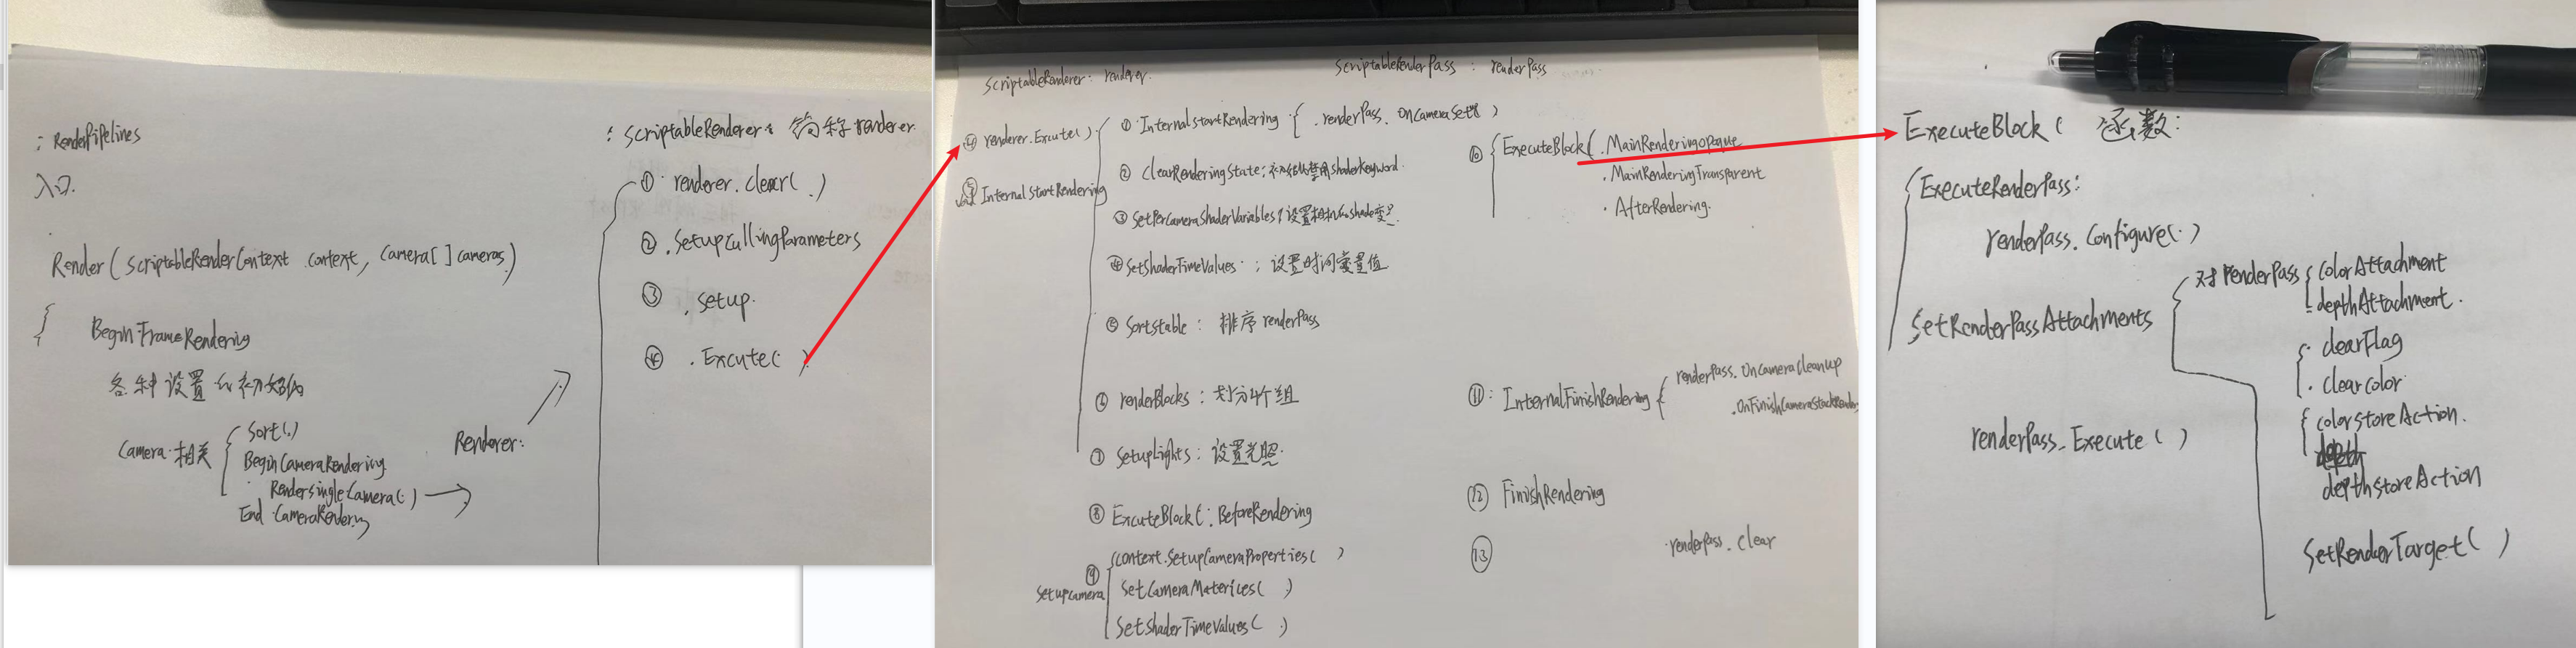 : RenderPipelines
入口.
Render(ScriptableRenderContext context, Camera[] cameras)
{
BeginFrameRendering
各种设置和初始化
Camera相关
Sort(.)
BeginCameraRendering
RenderSingleCamera(.)
End CameraRendering
Renderer:
: ScriptableRenderer: 简称renderer
① renderer.clear( .)
② .SetupCullingParameters
③ .setup.
④ .Excute( )
ScriptableRenderer: renderer.
④ renderer.Excute()
InternalStartRendering
① InternalStartRendering { .renderPass. OnCameraSetup )
② ClearRenderingState: 初始化禁用shaderKeyword.
③ SetPerCameraShaderVariables: 设置相机shader变量
④ SetShaderTimeValues : 设置时间变量值
⑤ SortStable: 排序renderPass
⑥ renderBlocks: 划分4个组
⑦ SetupLights: 设置光照.
⑧ ExcuteBlock(: BeforeRendering
⑨ SetupCamera
context.SetupCameraProperties( )
SetCameraMaterices( )
SetShaderTimeValues( )
ScriptableRenderPass : renderPass
⑩ { ExecuteBlock( .MainRenderingOpaque
.MainRenderingTransparent
.AfterRendering.
⑪: InternalFinishRendering {
renderPass. OnCameraCleanup
.OnFinishCameraStackRender
⑫ FinishRendering
⑬ .renderPass. Clear
ExecuteBlock( 函数:
ExecuteRenderPass:
renderPass. Configure(.)
SetRenderPassAttachments
对renderPass
colorAttachment
depthAttachment.
clearFlag
clearColor
colorStoreAction.
depthStoreAction
SetRenderTarget( )
renderPass. Execute( )